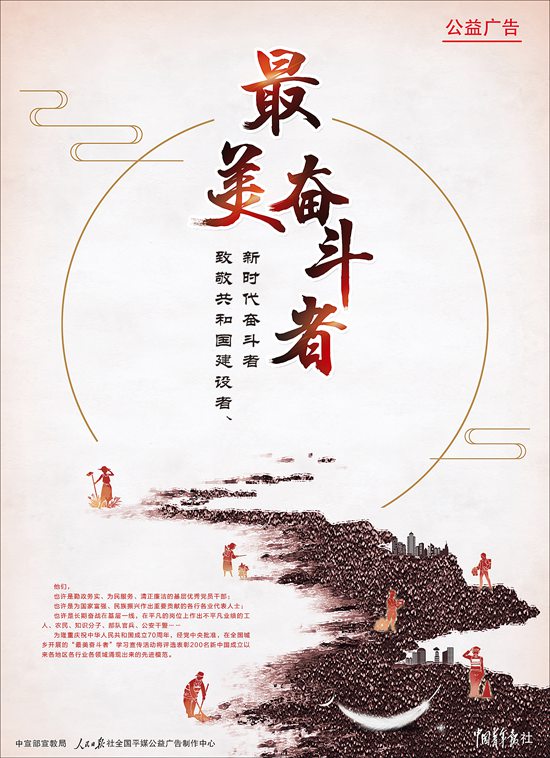 公益广告
最美奋斗者
致敬共和国建设者、
新时代奋斗者
他们，
也许是勤政务实、为民服务、清正廉洁的基层优秀党员干部；
也许是为国家富强、民族振兴作出重要贡献的各行各业代表人士；
也许是长期奋战在基层一线，在平凡的岗位上作出不平凡业绩的工
人、农民、知识分子、部队官兵、公安干警……
为隆重庆祝中华人民共和国成立70周年，经党中央批准，在全国城
乡开展的“最美奋斗者”学习宣传活动将评选表彰200名新中国成立以
来各地区各行业各领域涌现出来的先进模范。
中宣部宣教局 人民日报社全国平媒公益广告制作中心
中国青年报社